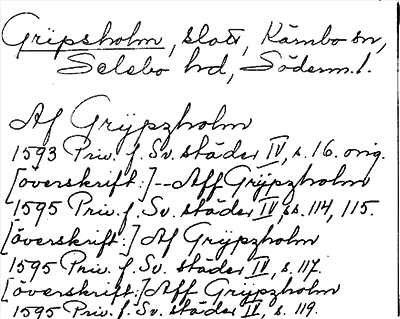 Gripsholm, slott, Kärnbo sn,
Selebo hd, Söderm. l.
Af Grÿpzholm
1593 Priv. f. Sv. städer IV, s. 16. orig.
[överskrift:]--Aff Grÿpzholm
1595 Priv. f. Sv. städer IV, ss. 114, 115.
[överskrift:] Af Grÿpzholm
1595 Priv. f. Sv. städer IV, s. 117.
[överskrift:] Aff Grÿpzholm
1595 Priv. f. Sv. städer IV, s. 119.